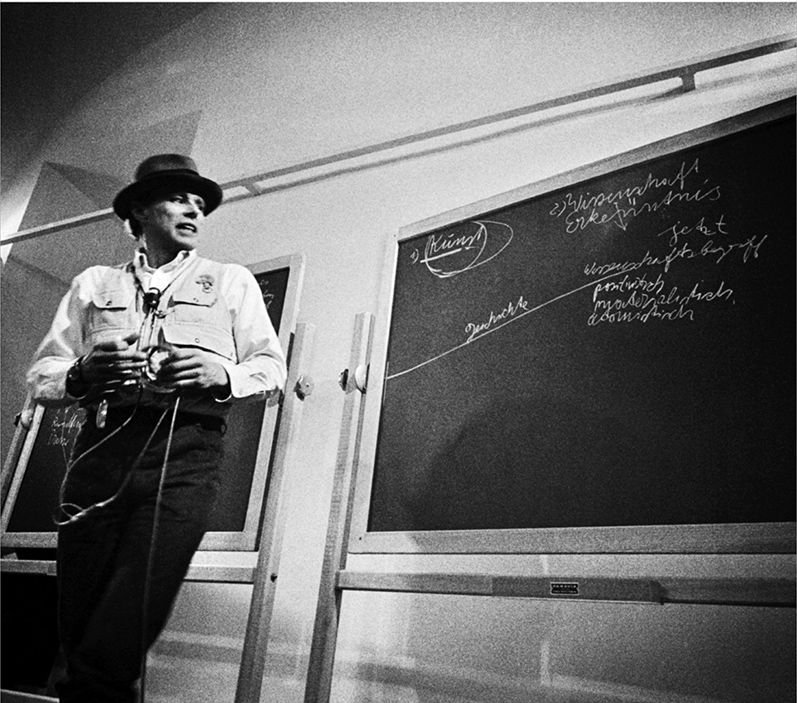 1) Kunst
2) Wissenschaft
Erkenntnis
jetzt
Wissenschaftsbegriff
positivistisch
materialistisch,
atomistisch
Geschichte